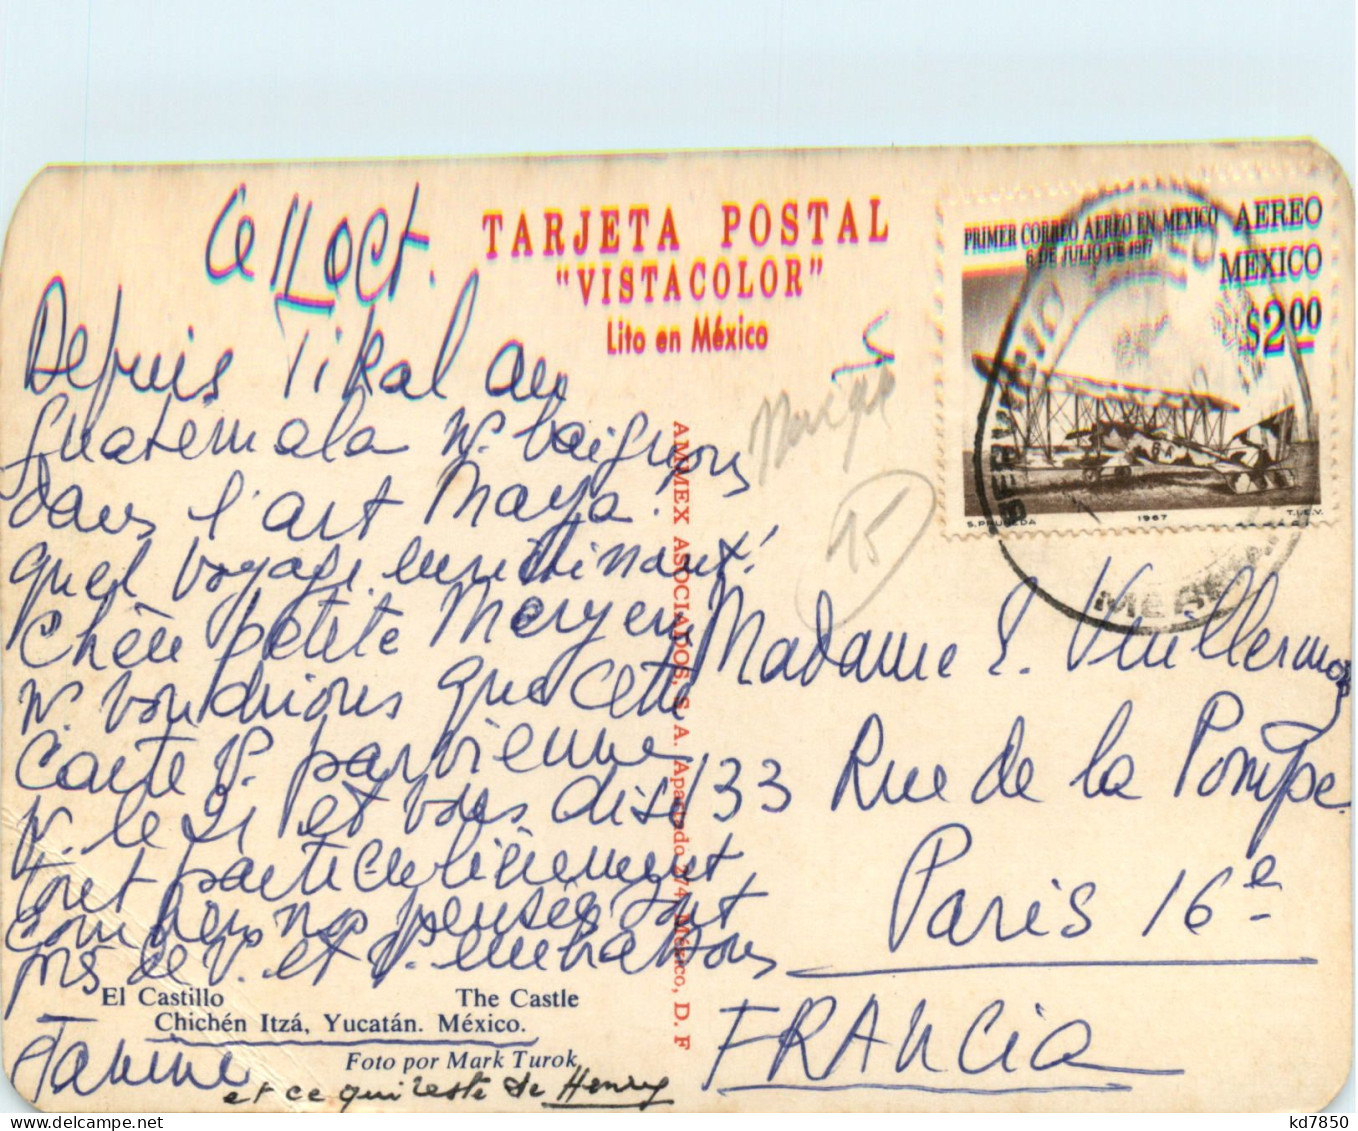 Ce 11 Oct.
TARJETA POSTAL
"VISTACOLOR"
Lito en México
PRIMER CORREO AEREO EN MEXICO
6 DE JULIO DE 1917
AEREO
MEXICO
$2.00
S. PRUNEDA 1967 T.I.E.V.
SERVICIO
Depuis Tikal au
Guatemala N. baignons
dans l'art Maya.
quel voyage hallucinant!
Chère petite
N. voudrions que cette
carte V. parvienne
N. le 21 et vous dise
tout particulièrement
combien nos pensées sont
près de V. et V. embrassons
Janine
et ce qui reste de Henry
El Castillo The Castle
Chichén Itzá, Yucatán. México.
Foto por Mark Turok
AMMEX ASOCIADOS, S. A. Apartado 274, México, D. F
15
Madame E. Vuillermoz
133 Rue de la Pompe
Paris 16e
FRANCIA
kd7850